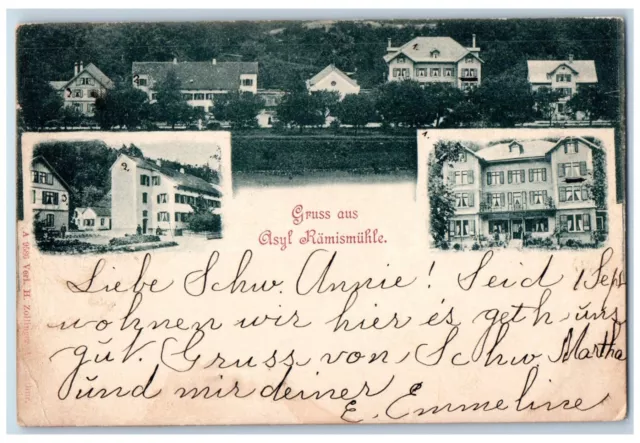 Gruss aus
Asyl Rämismühle.
Liebe Schw. Annie! Seid 1 Sept
wohnen wir hier es geth uns
gut. Gruss von Schw Martha
und mir deiner
E. Emmeline